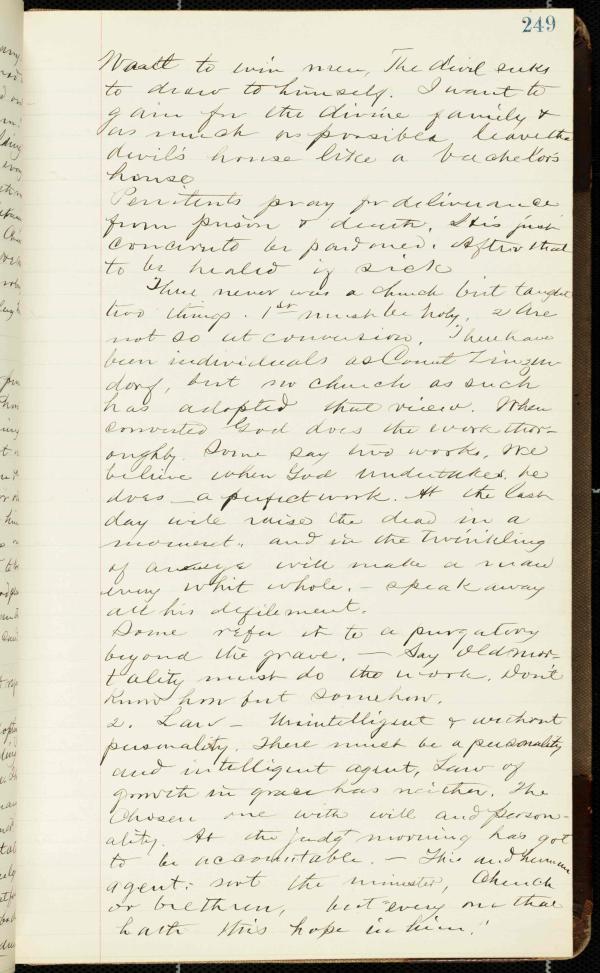 249
Want to win men, The divil seeks
to draw to himself. I want to
gain for the divine family &
as much as possible leave the
devil's house like a bachelor's
house
Penitents pray for deliverance
from prison & death. His just
concern to be pardoned. After that
to be healed if sick
There never was a church but taught
two things. 1st must be holy. 2 Are
not so at conversion. There have
been individuals as Count Zinzen
dorf, but no church as such
has adopted that view. When
converted God does the work thor-
oughly. Some say two works. We
believe when God undertakes he
does a perfect work. At the last
day will raise the dead in a
moment. and in the twinkling
of an eye will make a man
every whit whole. - speak away
all his defilement.
Some refer it to a purgatory
beyond the grave. - Say Old mor-
tality must do the work. Don't
know how but somehow.
2. Law - Unintelligent & without
personality. There must be a personality
and intelligent agent, Law of
growth in grace has neither. The
Chosen one with will and person-
ality. At the judgt morning has got
to be accountable. - This and human
agent: not the minister, Church
or brethren, but "every one that
hath this hope in him."